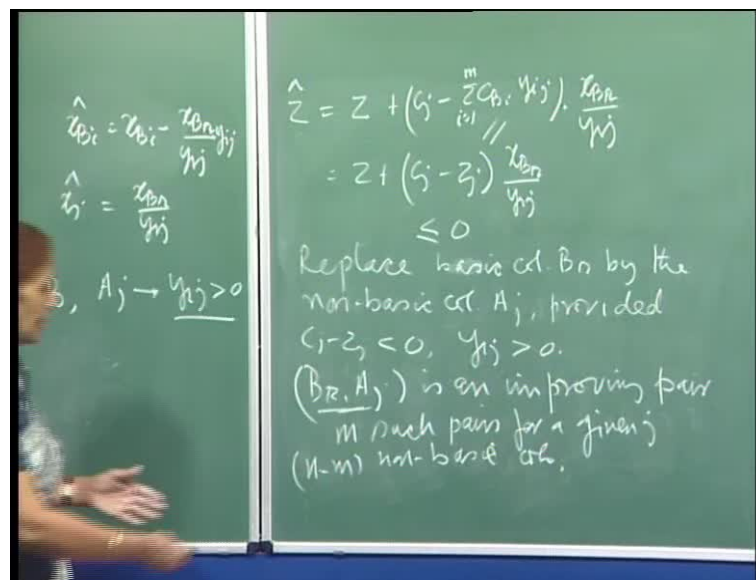 x̂_Bi = x_Bi - x_Br/y_rj y_ij
x̂_j = x_Br/y_rj
B, A_j → y_rj > 0
ẑ = z + (c_j - Σ_{i=1}^{m} c_Bi y_ij) · x_Br/y_rj
= z + (c_j - z_j) x_Br/y_rj
≤ 0
Replace basic col. B_r by the
non-basic col. A_j, provided
c_j - z_j < 0, y_rj > 0.
(B_r, A_j) is an improving pair
m such pairs for a given j
(n-m) non-basic cols.